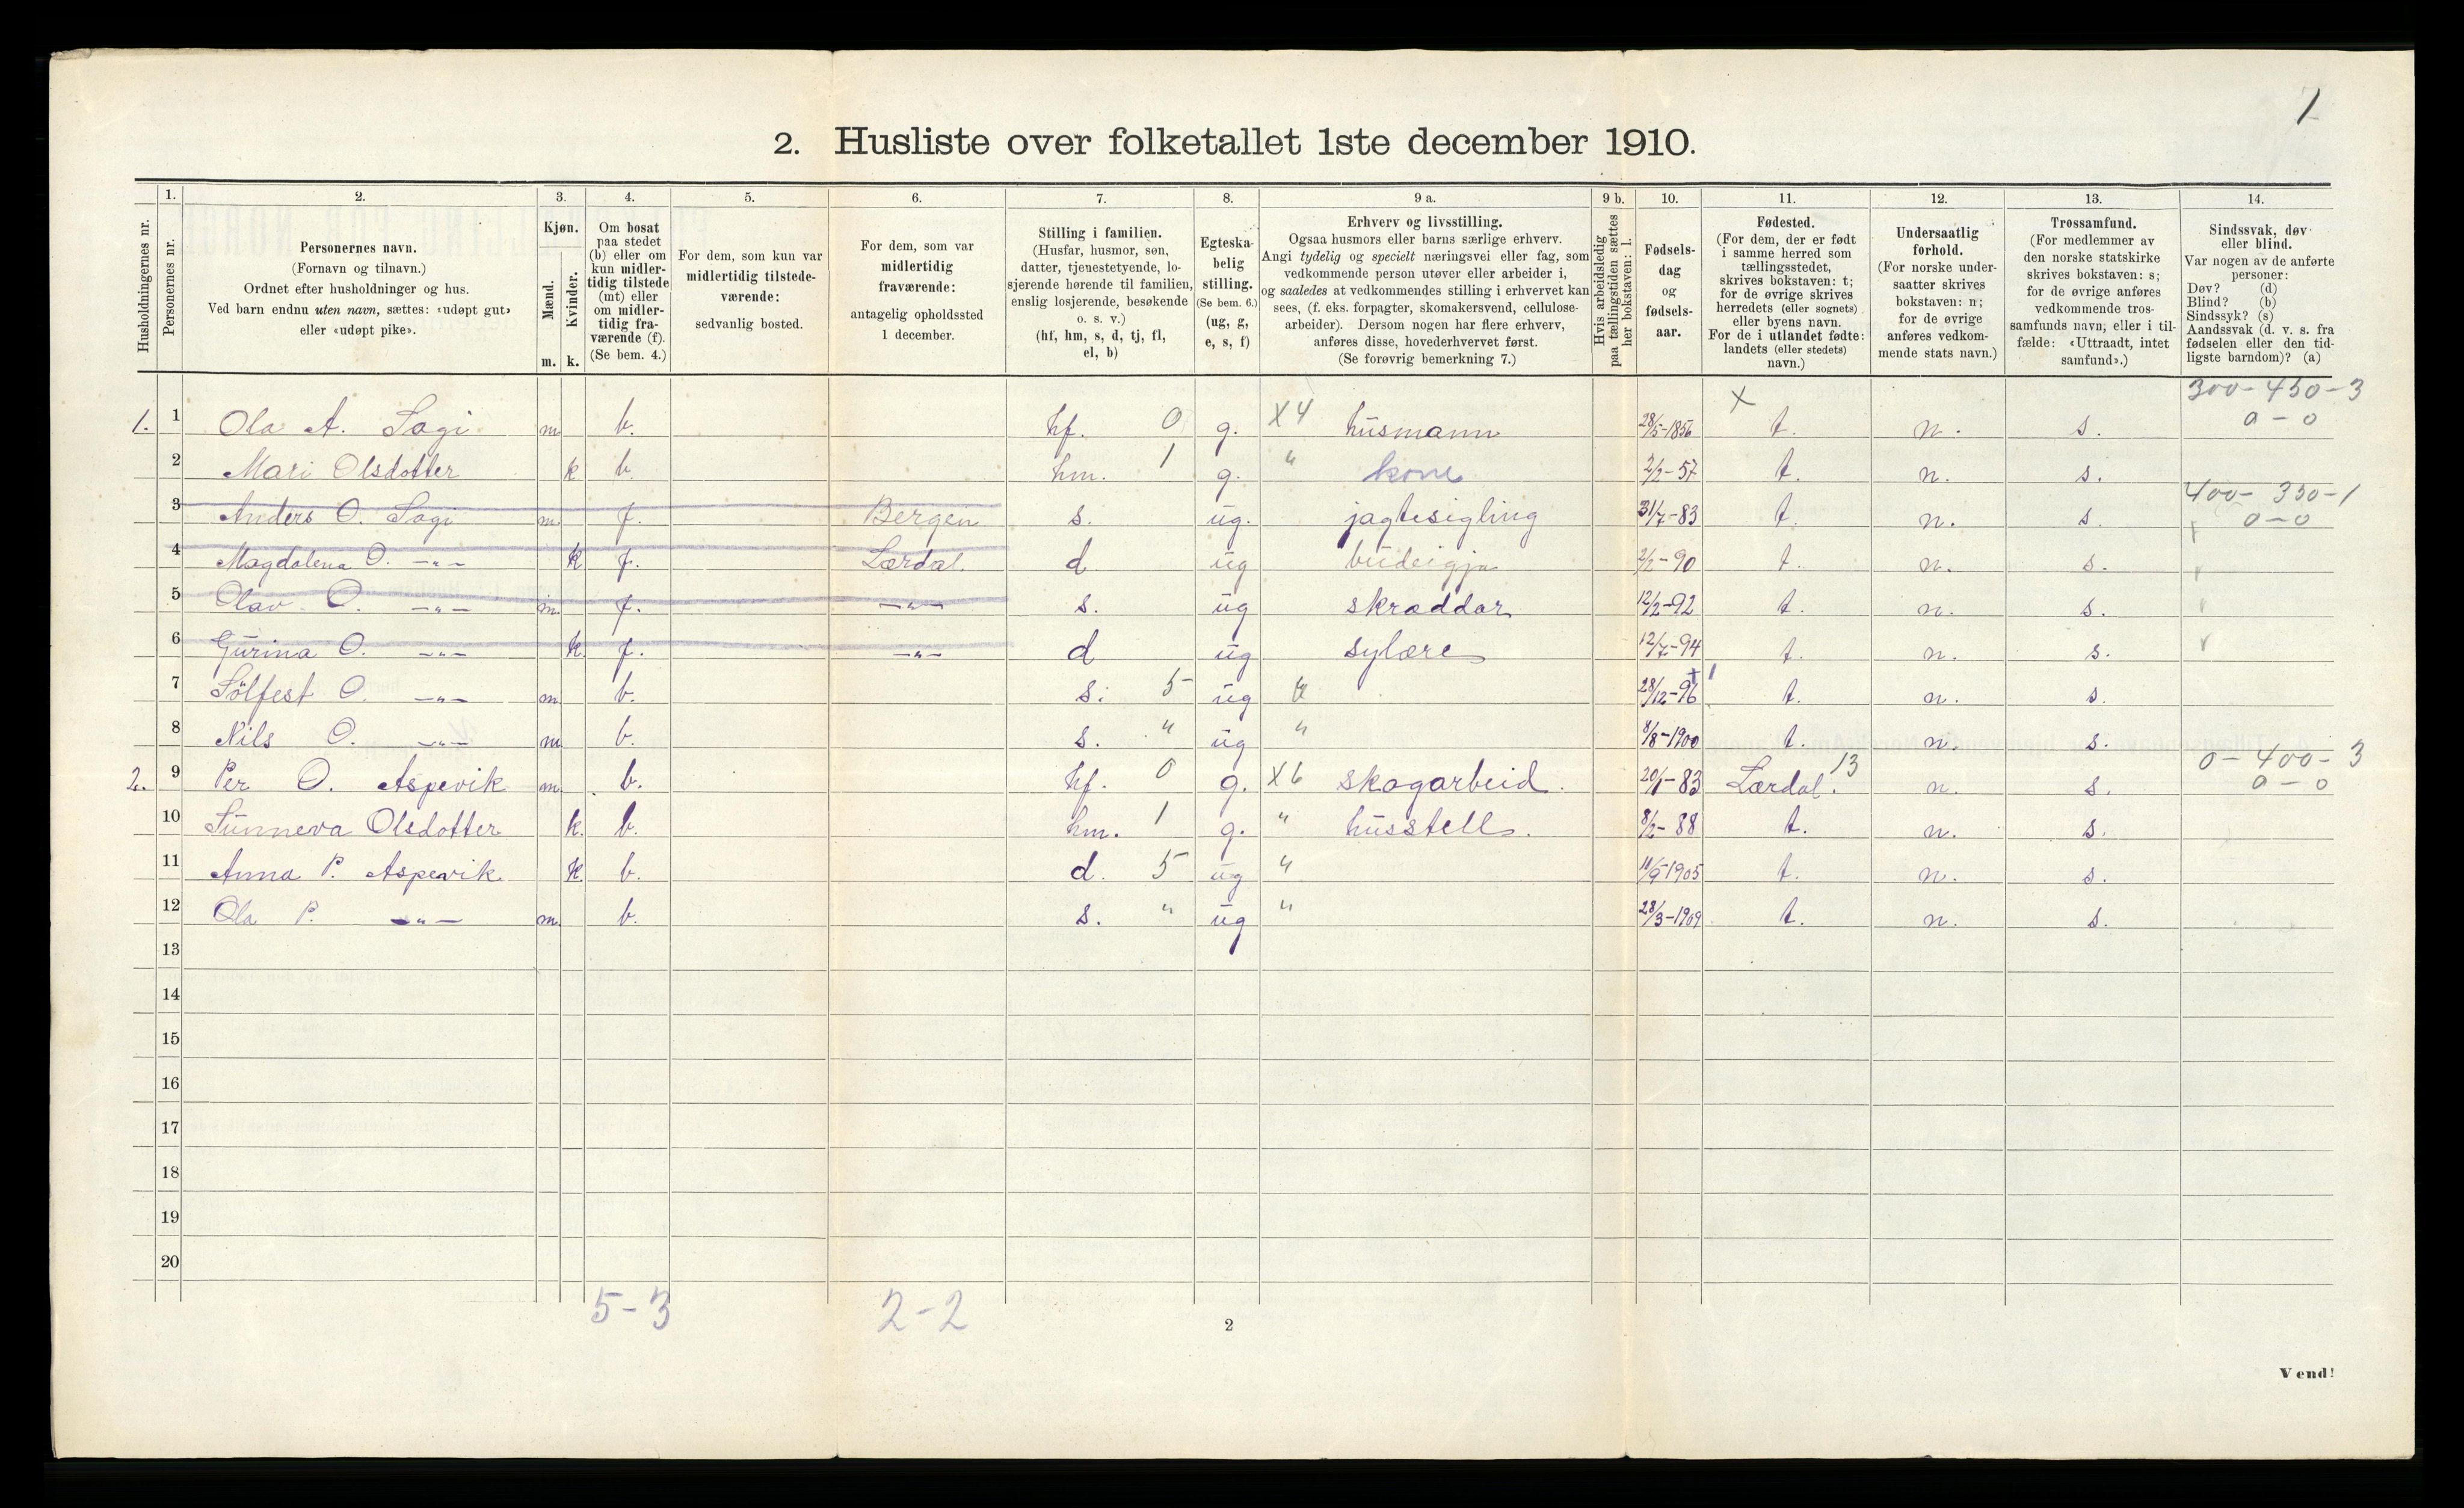 1
2. Husliste over folketallet 1ste december 1910.
Husholdningernes nr.
1. Personernes nr.
2. Personernes navn. (Fornavn og tilnavn.) Ordnet efter husholdninger og hus. Ved barn endnu uten navn, sættes: «udøpt gut» eller «udøpt pike».
3. Kjøn. Mænd. m. Kvinder. k.
4. Om bosat paa stedet (b) eller om kun midlertidig tilstede (mt) eller om midlertidig fraværende (f). (Se bem. 4.)
5. For dem, som kun var midlertidig tilstedeværende: sedvanlig bosted.
6. For dem, som var midlertidig fraværende: antagelig opholdssted 1 december.
7. Stilling i familien. (Husfar, husmor, søn, datter, tjenestetyende, losjerende hørende til familien, enslig losjerende, besøkende o. s. v.) (hf, hm, s, d, tj, fl, el, b)
8. Egteskabelig stilling. (Se bem. 6.) (ug, g, e, s, f)
9 a. Erhverv og livsstilling. Ogsaa husmors eller barns særlige erhverv. Angi tydelig og specielt næringsvei eller fag, som vedkommende person utøver eller arbeider i, og saaledes at vedkommendes stilling i erhvervet kan sees, (f. eks. forpagter, skomakersvend, cellulosearbeider). Dersom nogen har flere erhverv, anføres disse, hovederhvervet først. (Se forøvrig bemerkning 7.)
9 b. Hvis arbeidsledig paa tællingstiden sættes her bokstaven: l.
10. Fødselsdag og fødselsaar.
11. Fødested. (For dem, der er født i samme herred som tællingsstedet, skrives bokstaven: t; for de øvrige skrives herredets (eller sognets) eller byens navn. For de i utlandet fødte: landets (eller stedets) navn.)
12. Undersaatlig forhold. (For norske undersaatter skrives bokstaven: n; for de øvrige anføres vedkommende stats navn.)
13. Trossamfund. (For medlemmer av den norske statskirke skrives bokstaven: s; for de øvrige anføres vedkommende trossamfunds navn, eller i tilfælde: «Uttraadt, intet samfund».)
14. Sindssvak, døv eller blind. Var nogen av de anførte personer: Døv? (d) Blind? (b) Sindssyk? (s) Aandssvak (d. v. s. fra fødselen eller den tidligste barndom)? (a)
300-450-3
1. 1 Ola A. Sagi m. b. hf. 0 g. X4 husmann 28/5-1856 X t. n. s. 0-0
2 Mari Olsdotter k b. hm. 1 g. " kone 2/2-57 t. n. s.
400-350-1
3 Anders O. Sagi m. f. Bergen s. ug. jagtesigling 31/7-83 t. n. s. 0-0
4 Magdalena O. -"- k f. Lærdal. d ug budeigja 2/2-90 t. n. s.
5 Olav O. -"- m. f. -"- s. ug skræddar 12/2-92 t. n. s.
6 Gurina O. -"- k. f. -"- d ug sylære 12/7-94 t. n. s.
7 Sölfest O. -"- m b. s. 5 ug 28/12-96 t. n. s.
8 Nils O. -"- m b. s. " ug " 8/8-1900 t. n. s.
0-400-3
2. 9 Per O. Aspevik m. b. hf. 0 g. X6 skogarbeid. 20/1-83 Lærdal. 13 n. s. 0-0
10 Sunneva Olsdotter k. b. hm. 1 g. " husstell. 8/2-88 t. n. s.
11 Anna P. Aspevik k. b. d. 5 ug " 11/9-1905 t. n. s.
12 Ola P. -"- m. b. s. " ug " 28/3-1909 t. n. s.
13
14
15
16
17
18
19
20
5-3 2-2
2
Vend!